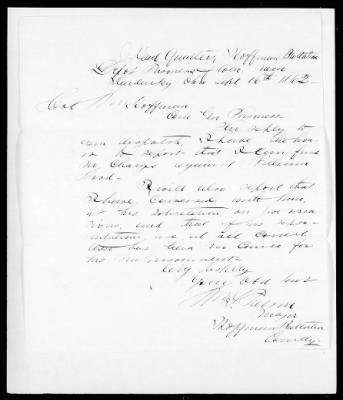 Head Quarters, Hoffman Battalion
Depot Prisoners of War near
Sandusky Ohio Sept 16th 1862
Col Wm Hoffman
Com Gen Prisoners
In reply to
your dispatch, I have the hon
or to report that I can find
no charges against William
Ford.
I will also report that
I have conversed with him,
at his solicitation on two occa
sions, and that if his repre
sentations are at all correct
there has been no cause for
his
Very Respectfully
Your Obdt Servt
Wm S. Pierson
Major
Hoffman Battalion
Comdg.